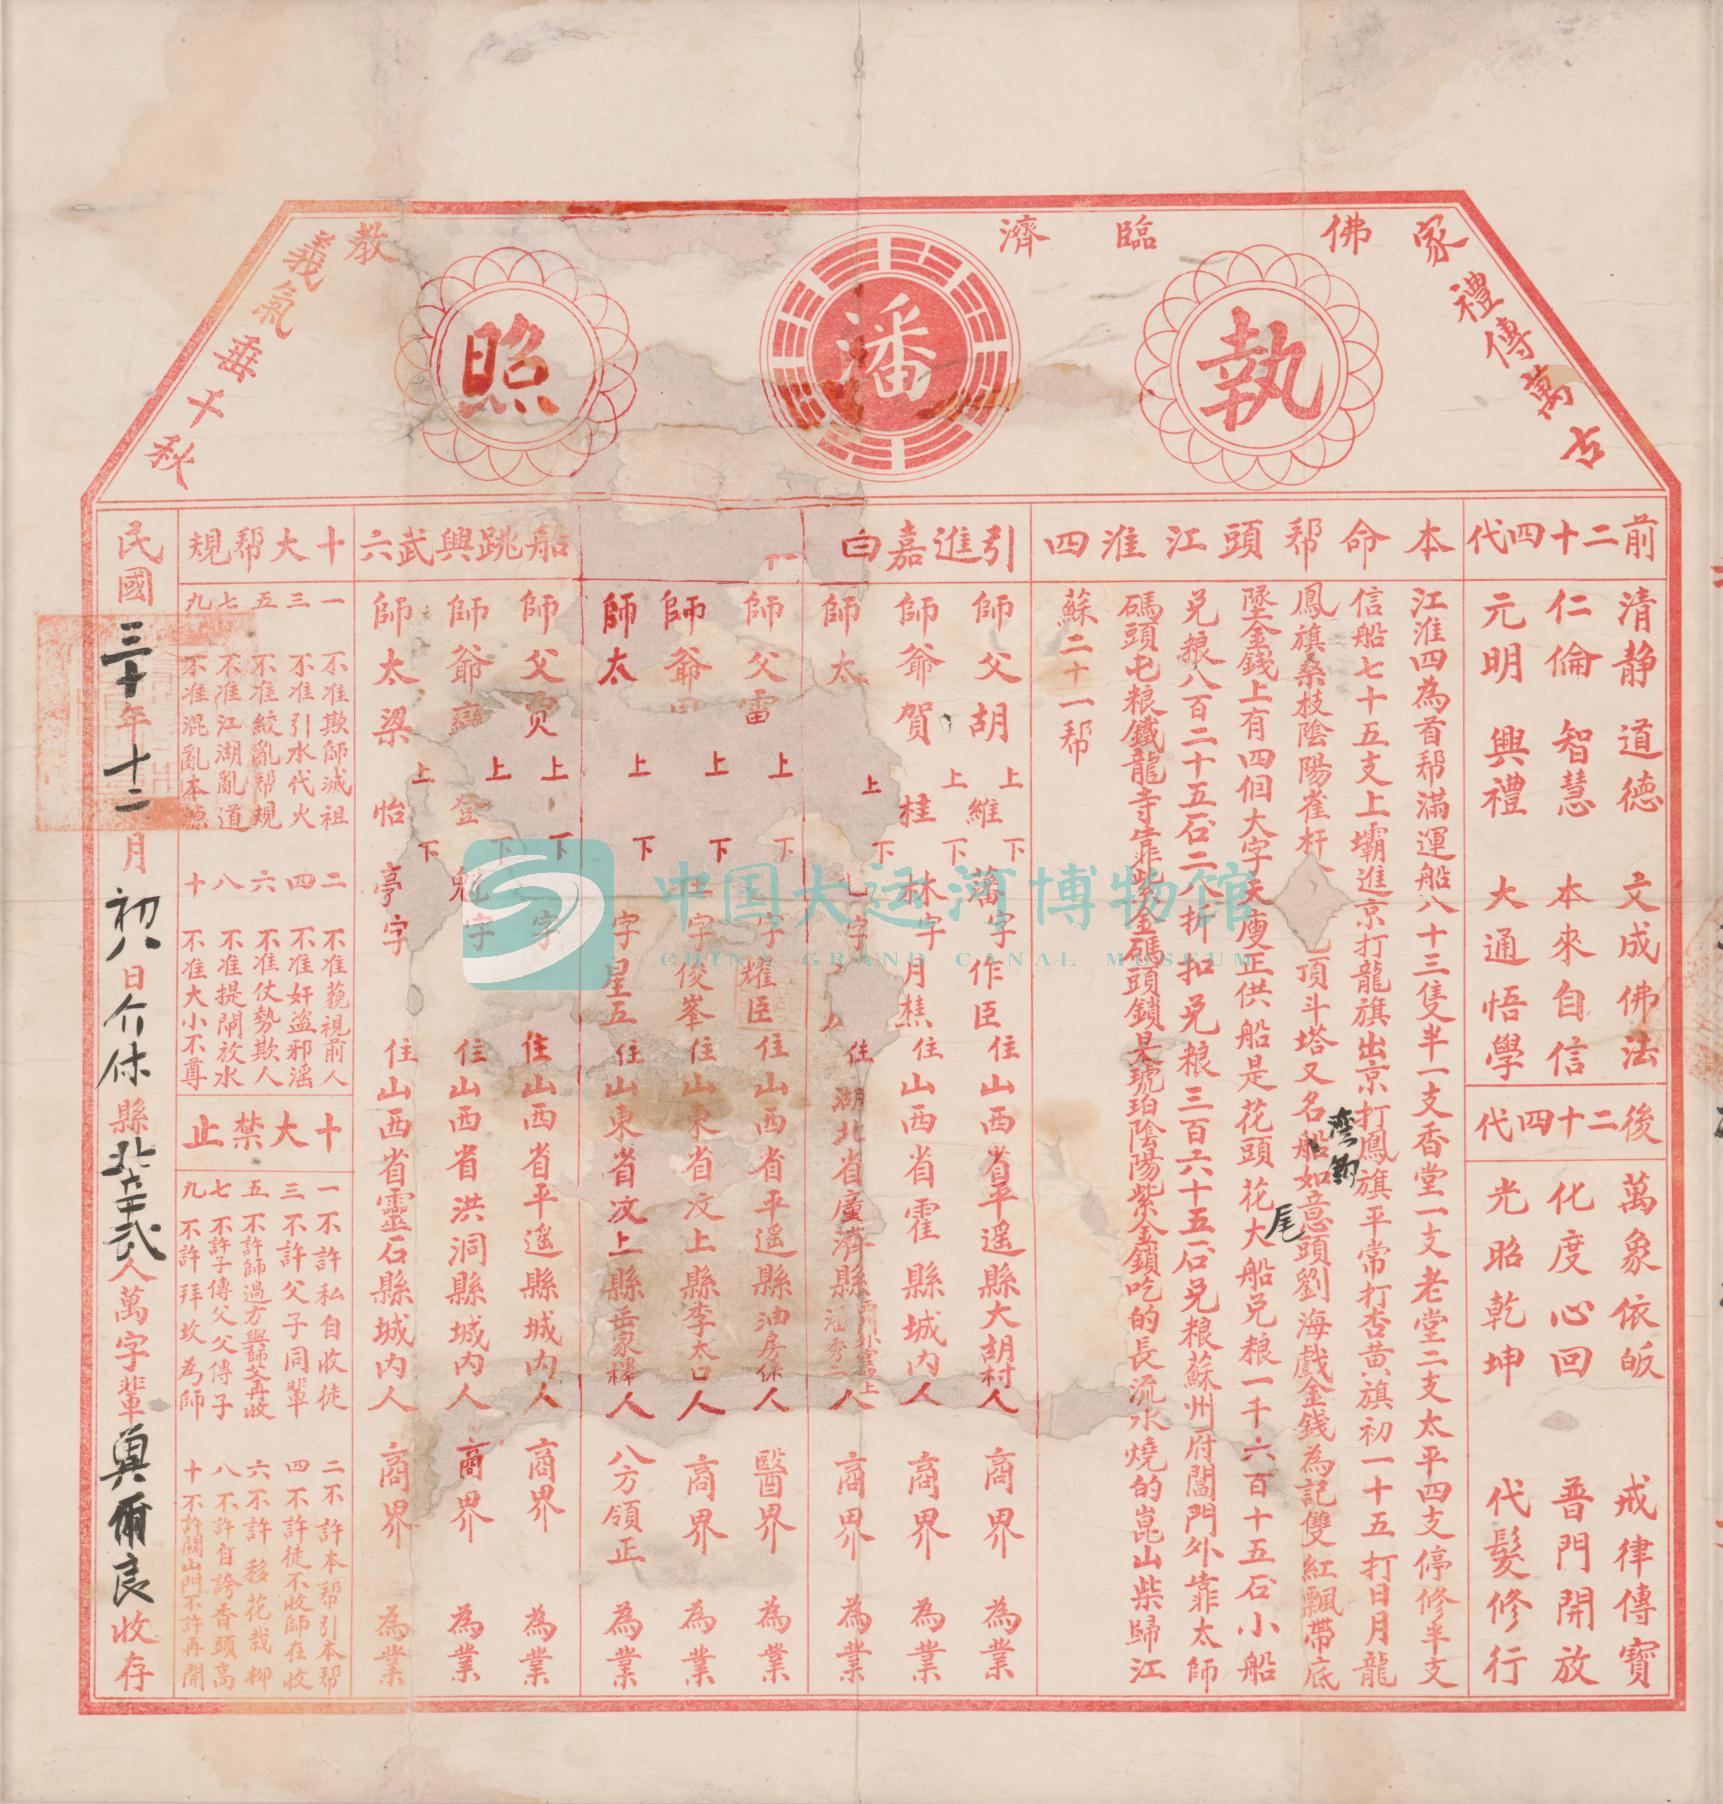 家佛
臨濟
教
禮傳萬古
義氣垂千秋
執
潘
照
前二十四代
清静道德文成佛法
仁倫智慧本來自信
元明興禮大通悟學
後二十四代
萬象依皈戒律傳寶
化度心回普門開放
光昭乾坤代髮修行
本命帮頭江淮四
江淮四為首帮滿運船八十三隻半一支香堂一支老堂二支太平四支停修半支
信船七十五支上壩進京打龍旗出京打鳳旗平常打杏黄旗初一十五打日月龍
鳳旗桑枝陰陽雀杆
頂斗塔又名船如意頭劉海戲金錢為記雙紅飄帶底
灣
尾
墜金錢上有四個大字天廋正供船是花頭花大船兑粮一千六百十五石小船
兑粮八百二十五石二八折扣兑粮三百六十五石兑粮蘇州府閶門外靠太師
碼頭屯粮鐵龍寺靠紫金碼頭鎖是琥珀陰陽紫金鎖吃的長流水燒的崑山柴歸江
蘇二十一帮
引進嘉白
師父胡上維下藩字作臣住山西省平遥縣大胡村人商界為業
師爺賀上桂下林字月樵住山西省霍縣城内人商界為業
師太上下字住湖北省縣人商界為業
師父雷上下字耀臣住山西省平遥縣油房人醫界為業
師爺上下字俊峯住山東省汶上縣李太口人商界為業
師太上下字星五住山東省汶上縣岳家人八方領正為業
船跳興武六
師父贾上下字住山西省平遥縣城内人商界為業
師爺上登下魁字住山西省洪洞縣城内人商界為業
師太梁上怡下亭字住山西省靈石縣城内人商界為業
十大帮規
一不准欺師滅祖
二不准藐視前人
三不准引水代火
四不准奸盗邪滛
五不准絞亂帮規
六不准仗勢欺人
七不准江湖亂道
八不准提閘放水
九不准混亂本德
十不准大小不尊
十大禁止
一不許私自收徒
二不許本帮引本帮
三不許父子同輩
四不許徒不收師在收
五不許師過方與師父再收
六不許移花栽柳
七不許子傳父父傳子
八不許自誇香頭高
九不許拜坎為師
十不許關山門不許再開
民國三十年十二月初八日介休縣人萬字輩冀爾良收存
中国大运河博物馆
CHINA GRAND CANAL MUSEUM